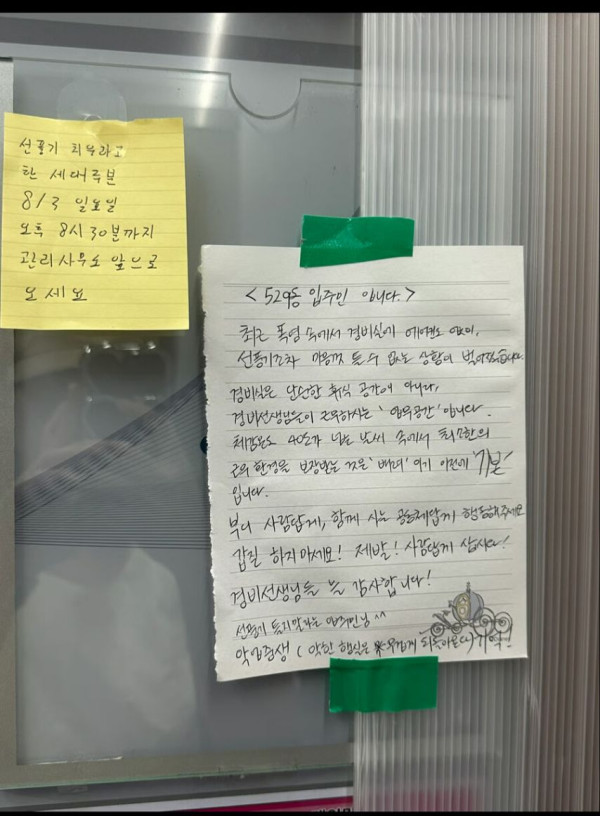 선풍기 치우라고
한 세대주분
8/3 일요일
오후 8시 30분까지
관리사무소 앞으로
오세요
< 529동 입주민 입니다. >
최근 폭염 속에서 경비실에 에어컨도 없이,
선풍기조차 마음껏 틀 수 없는 상황이 벌어졌습니다.
경비실은 단순한 휴식 공간이 아니라,
경비선생님들이 근무하시는 '업무공간' 입니다.
체감온도 40도가 넘는 날씨 속에서 최소한의
근무환경을 보장받는 것은 '배려' 이기 이전에 '기본'
입니다.
부디 사람답게, 함께 사는 공동체답게 행동해주세요
갑질 하지마세요! 제발! 사람답게 삽시다!
경비선생님들 늘 감사합니다!
선풍기 틀지말라는 입주민님 ^^
악업중생 ( 악한 행실은 무겁게 되돌아온다) 기억!